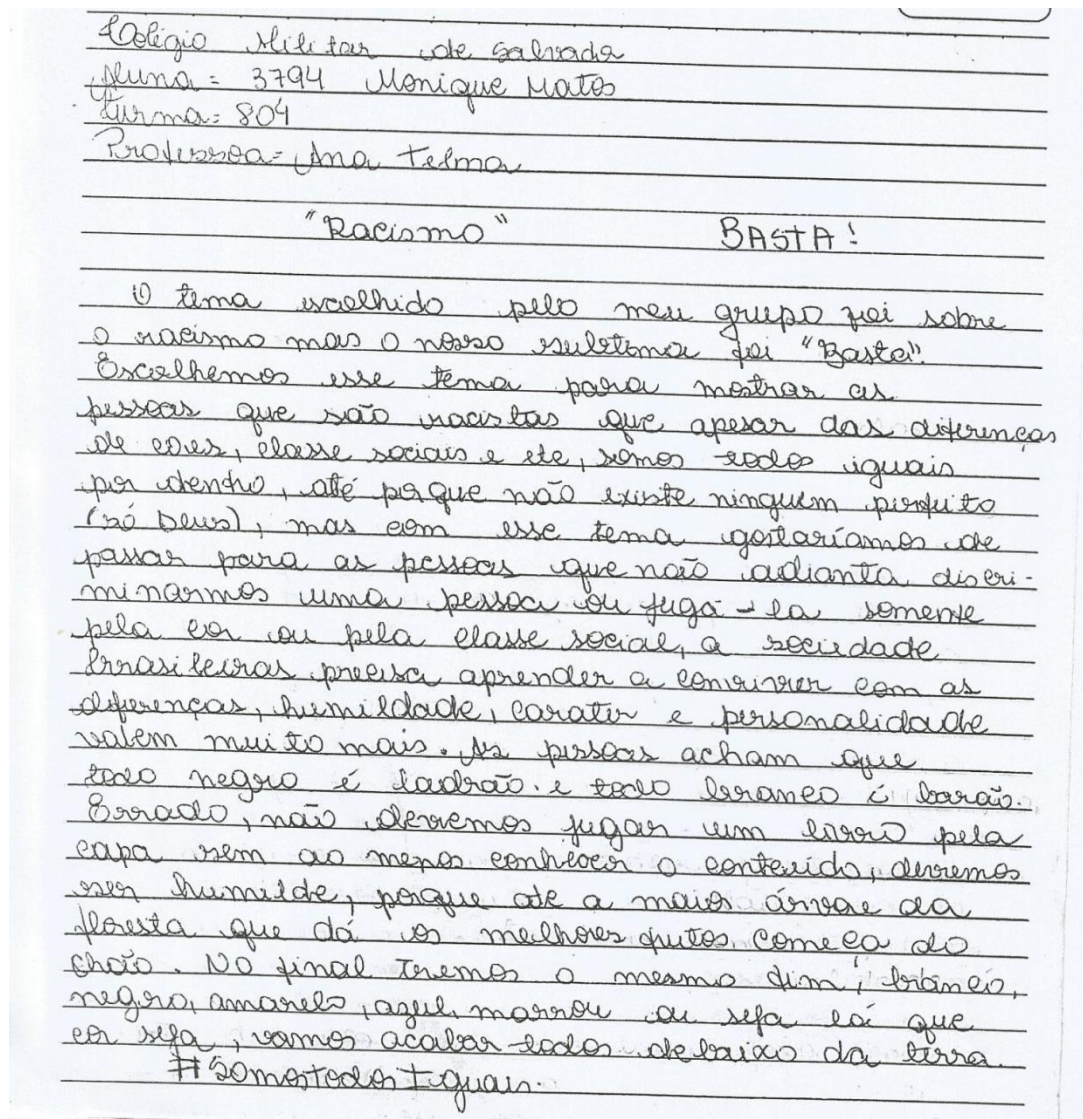 Colégio Militar de Salvador
Aluna = 3794 Monique Matos
Turma = 804
Professoa = Ana Telma
"Racismo" BASTA!
O tema escolhido pelo meu grupo foi sobre
o racismo mas o nosso subtema foi "Basta".
Escolhemos esse tema para mostrar as
pessoas que são racistas que apesar das diferenças
de cores, classe sociais e etc, somos todos iguais
por dentro, até porque não existe ninguém perfeito
(só Deus), mas com esse tema gostaríamos de
passar para as pessoas que não adianta discri-
minarmos uma pessoa ou jugá-la somente
pela cor ou pela classe social, a sociedade
brrasileiras precisa aprender a conviver com as
diferenças, humildade, carater e personalidade
valem muito mais. As pessoas acham que
todo negro é ladrão e todo branco é barão.
Errado, não devemos jugar um livro pela
capa sem ao menos conhecer o conteúdo, devemos
ser humilde, porque até a maior árvore da
floresta que dá os melhores frutos começa do
chão. No final teremos o mesmo fim, branco,
negro, amarelo, azul, marrou ou seja lá que
cor seja, vamos acabar todos debaixo da terra.
#SomostodosIguais.